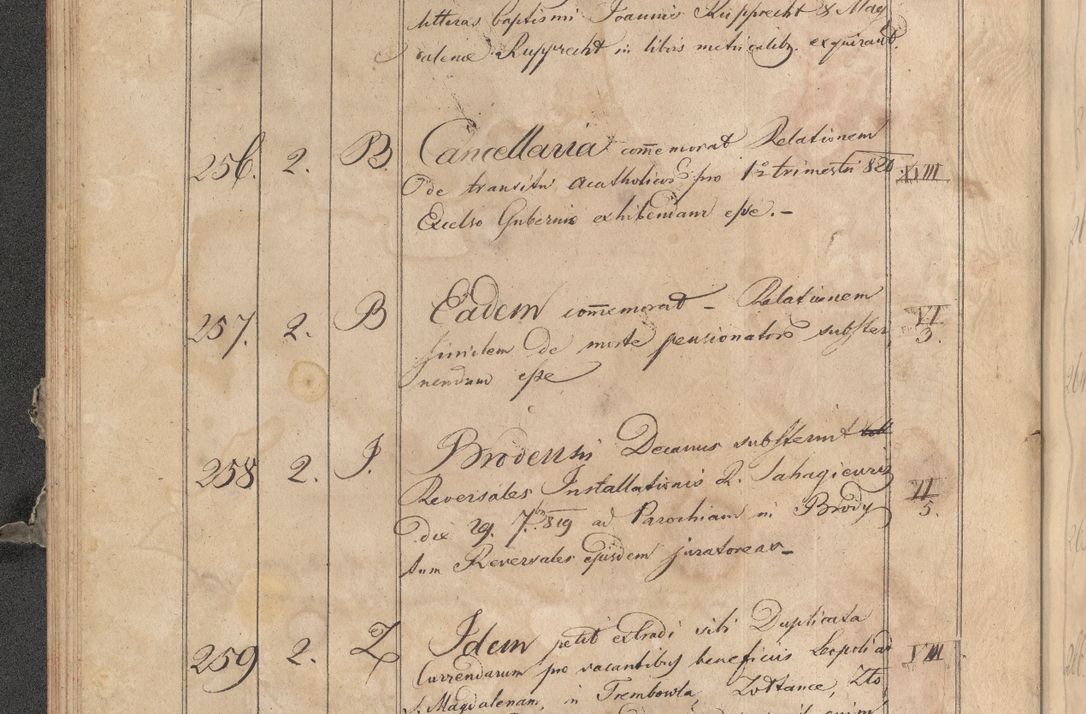 litteras baptismi Joannis Rupprecht & Mag
dalenæ Rupprecht in libris metricalib. exquirant.
256. 2. B. Cancellaria com̄emorat Relationem
de transitu acatholicor pro 1º trimestri 820 XVIII
Excelso Gubernio exhibendam esse. –
257. 2. B Eadem com̄emorat – Relationem VI
similem de morte pensionator subster 3.
nendam esse
258 2. J. Brodensis Decanus substernit
Reversales Installationis R. Sahagieuriz II
ddto 29. 7br 819 ad Parochiam in Brody 5.
tum Reversales ejusdem juratoreas –
259 2. Z Idem petit extradi sibi Duplicata
Currendarum pro vacantibus beneficiis Leopoli ad VIII
S. Magdalenam, in Trembowla, Zoltance, Zło